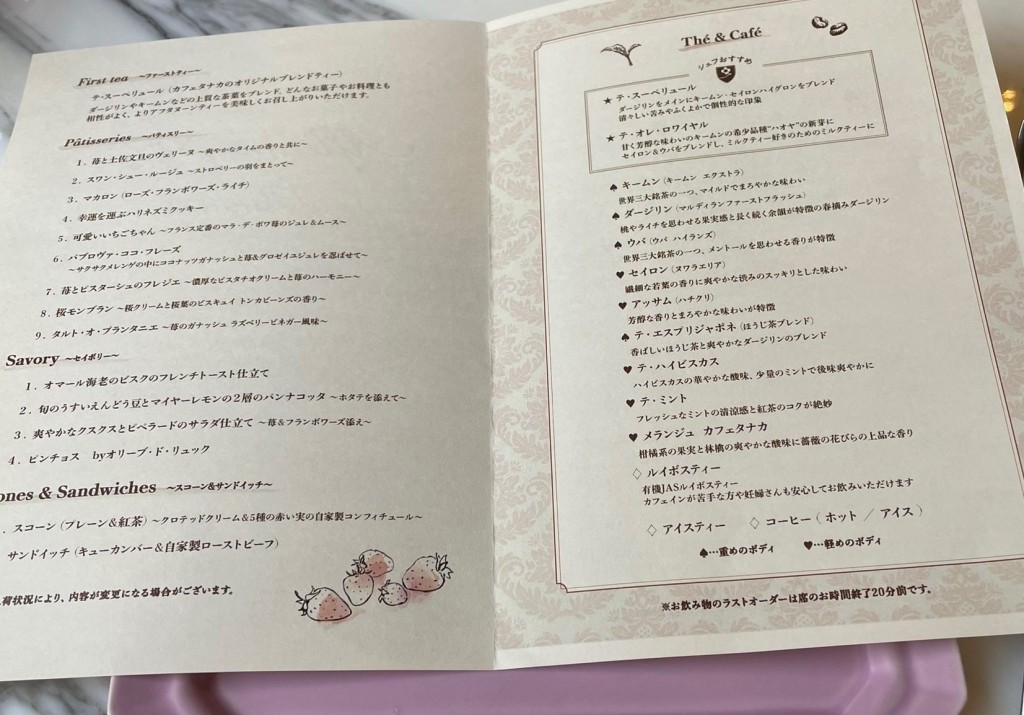 First tea ～ファーストティー～
テ・スーペリュール（カフェタナカのオリジナルブレンドティー）
ダージリンやキームンなどの上質な茶葉をブレンド。どんなお菓子やお料理とも
相性がよく、よりアフタヌーンティーを美味しくお召し上がりいただけます。
Pâtisseries ～パティスリー～
1．苺と土佐文旦のヴェリーヌ ～爽やかなタイムの香りと共に～
2．スワン・シュー・ルージュ ～ストロベリーの羽をまとって～
3．マカロン（ローズ・フランボワーズ・ライチ）
4．幸運を運ぶハリネズミクッキー
5．可愛いいちごちゃん ～フランス定番のマラ・デ・ボワ苺のジュレ＆ムース～
6．パブロヴァ・ココ・フレーズ
～サクサクメレンゲの中にココナッツガナッシュと苺&グロゼイユジュレを忍ばせて～
7．苺とピスターシュのフレジエ ～濃厚なピスタチオクリームと苺のハーモニー～
8．桜モンブラン ～桜クリームと桜葉のビスキュイ トンカビーンズの香り～
9．タルト・オ・プランタニエ ～苺のガナッシュ ラズベリービネガー風味～
Savory ～セイボリー～
1．オマール海老のビスクのフレンチトースト仕立て
2．旬のうすいえんどう豆とマイヤーレモンの2層のパンナコッタ ～ホタテを添えて～
3．爽やかなクスクスとピペラードのサラダ仕立て ～苺&フランボワーズ添え～
4．ピンチョス byオリーブ・ド・リュック
ones & Sandwiches ～スコーン&サンドイッチ～
．スコーン（プレーン&紅茶）～クロテッドクリーム&5種の赤い実の自家製コンフィチュール～
サンドイッチ（キューカンバー&自家製ローストビーフ）
荷状況により、内容が変更になる場合がございます。
Thé & Café
シェフおすすめ
★ テ・スーペリュール
ダージリンをメインにキームン・セイロンハイグロンをブレンド
清々しい苦みやふくよかで個性的な印象
★ テ・オレ・ロワイヤル
甘く芳醇な味わいのキームンの希少品種"ハオヤ"の新芽に
セイロン&ウバをブレンドし、ミルクティー好きのためのミルクティーに
♠ キームン（キームン エクストラ）
世界三大銘茶の一つ、マイルドでまろやかな味わい
♠ ダージリン（マルディランファーストフラッシュ）
桃やライチを思わせる果実感と長く続く余韻が特徴の春摘みダージリン
♠ ウバ（ウバ ハイランズ）
世界三大銘茶の一つ、メントールを思わせる香りが特徴
♥ セイロン（ヌワラエリア）
繊細な若葉の香りに爽やかな渋みのスッキリとした味わい
♥ アッサム（ハチクリ）
芳醇な香りとまろやかな味わいが特徴
♠ テ・エスプリジャポネ（ほうじ茶ブレンド）
香ばしいほうじ茶と爽やかなダージリンのブレンド
♥ テ・ハイビスカス
ハイビスカスの華やかな酸味、少量のミントで後味爽やかに
♥ テ・ミント
フレッシュなミントの清涼感と紅茶のコクが絶妙
♥ メランジュ カフェタナカ
柑橘系の果実と林檎の爽やかな酸味に薔薇の花びらの上品な香り
♢ ルイボスティー
有機JASルイボスティー
カフェインが苦手な方や妊婦さんも安心してお飲みいただけます
♢ アイスティー ♢ コーヒー（ ホット ／ アイス ）
♠…重めのボディ ♥…軽めのボディ
※お飲み物のラストオーダーは席のお時間終了20分前です。